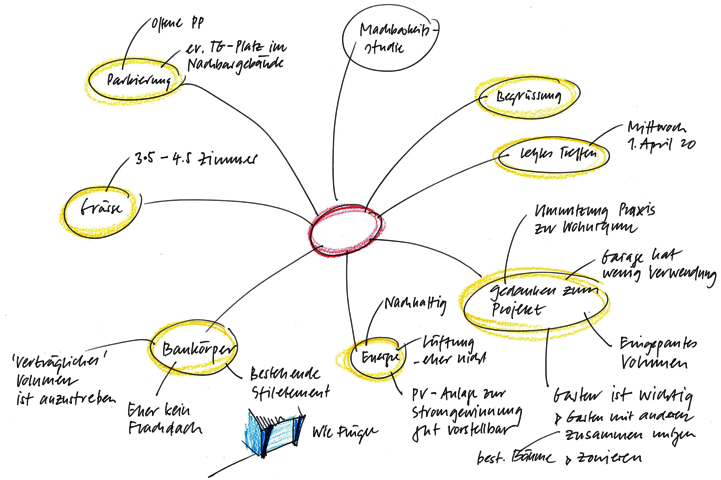 Offene PP
ev. TG-Platz im
Nachbargebäude
Parkierung
Machbarkeits-
studie
Begrüssung
letztes Treffen
Mittwoch
1. April 20
3.5 - 4.5 Zimmer
Grösse
Umnutzung Praxis
zu Wohnraum
Garage hat
wenig Verwendung
gedanken zum
Projekt
Eingepasstes
Volumen
Garten ist wichtig
Garten mit anderen
zusammen nutzen
best. Bäume
zonieren
Nachhaltig
Energie
Lüftung
- eher nicht
PV - Anlage zur
Stromgewinnung
gut vorstellbar
Baukörper
"Verträgliches"
Volumen
ist anzustreben
Eher kein
Flachdach
Bestehende
Stilelement
Wie